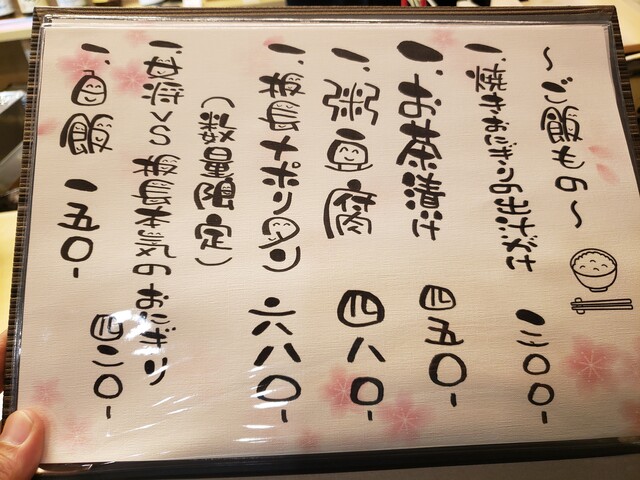 ～ご飯もの～
一、焼きおにぎりの出汁がけ 三〇〇-
一、お茶漬け 四五〇-
一、粥豆腐 四八〇-
一、板長ナポリタン 六八〇-
（数量限定）
一、女将VS板長本気のおにぎり 四二〇-
一、白飯 一五〇-